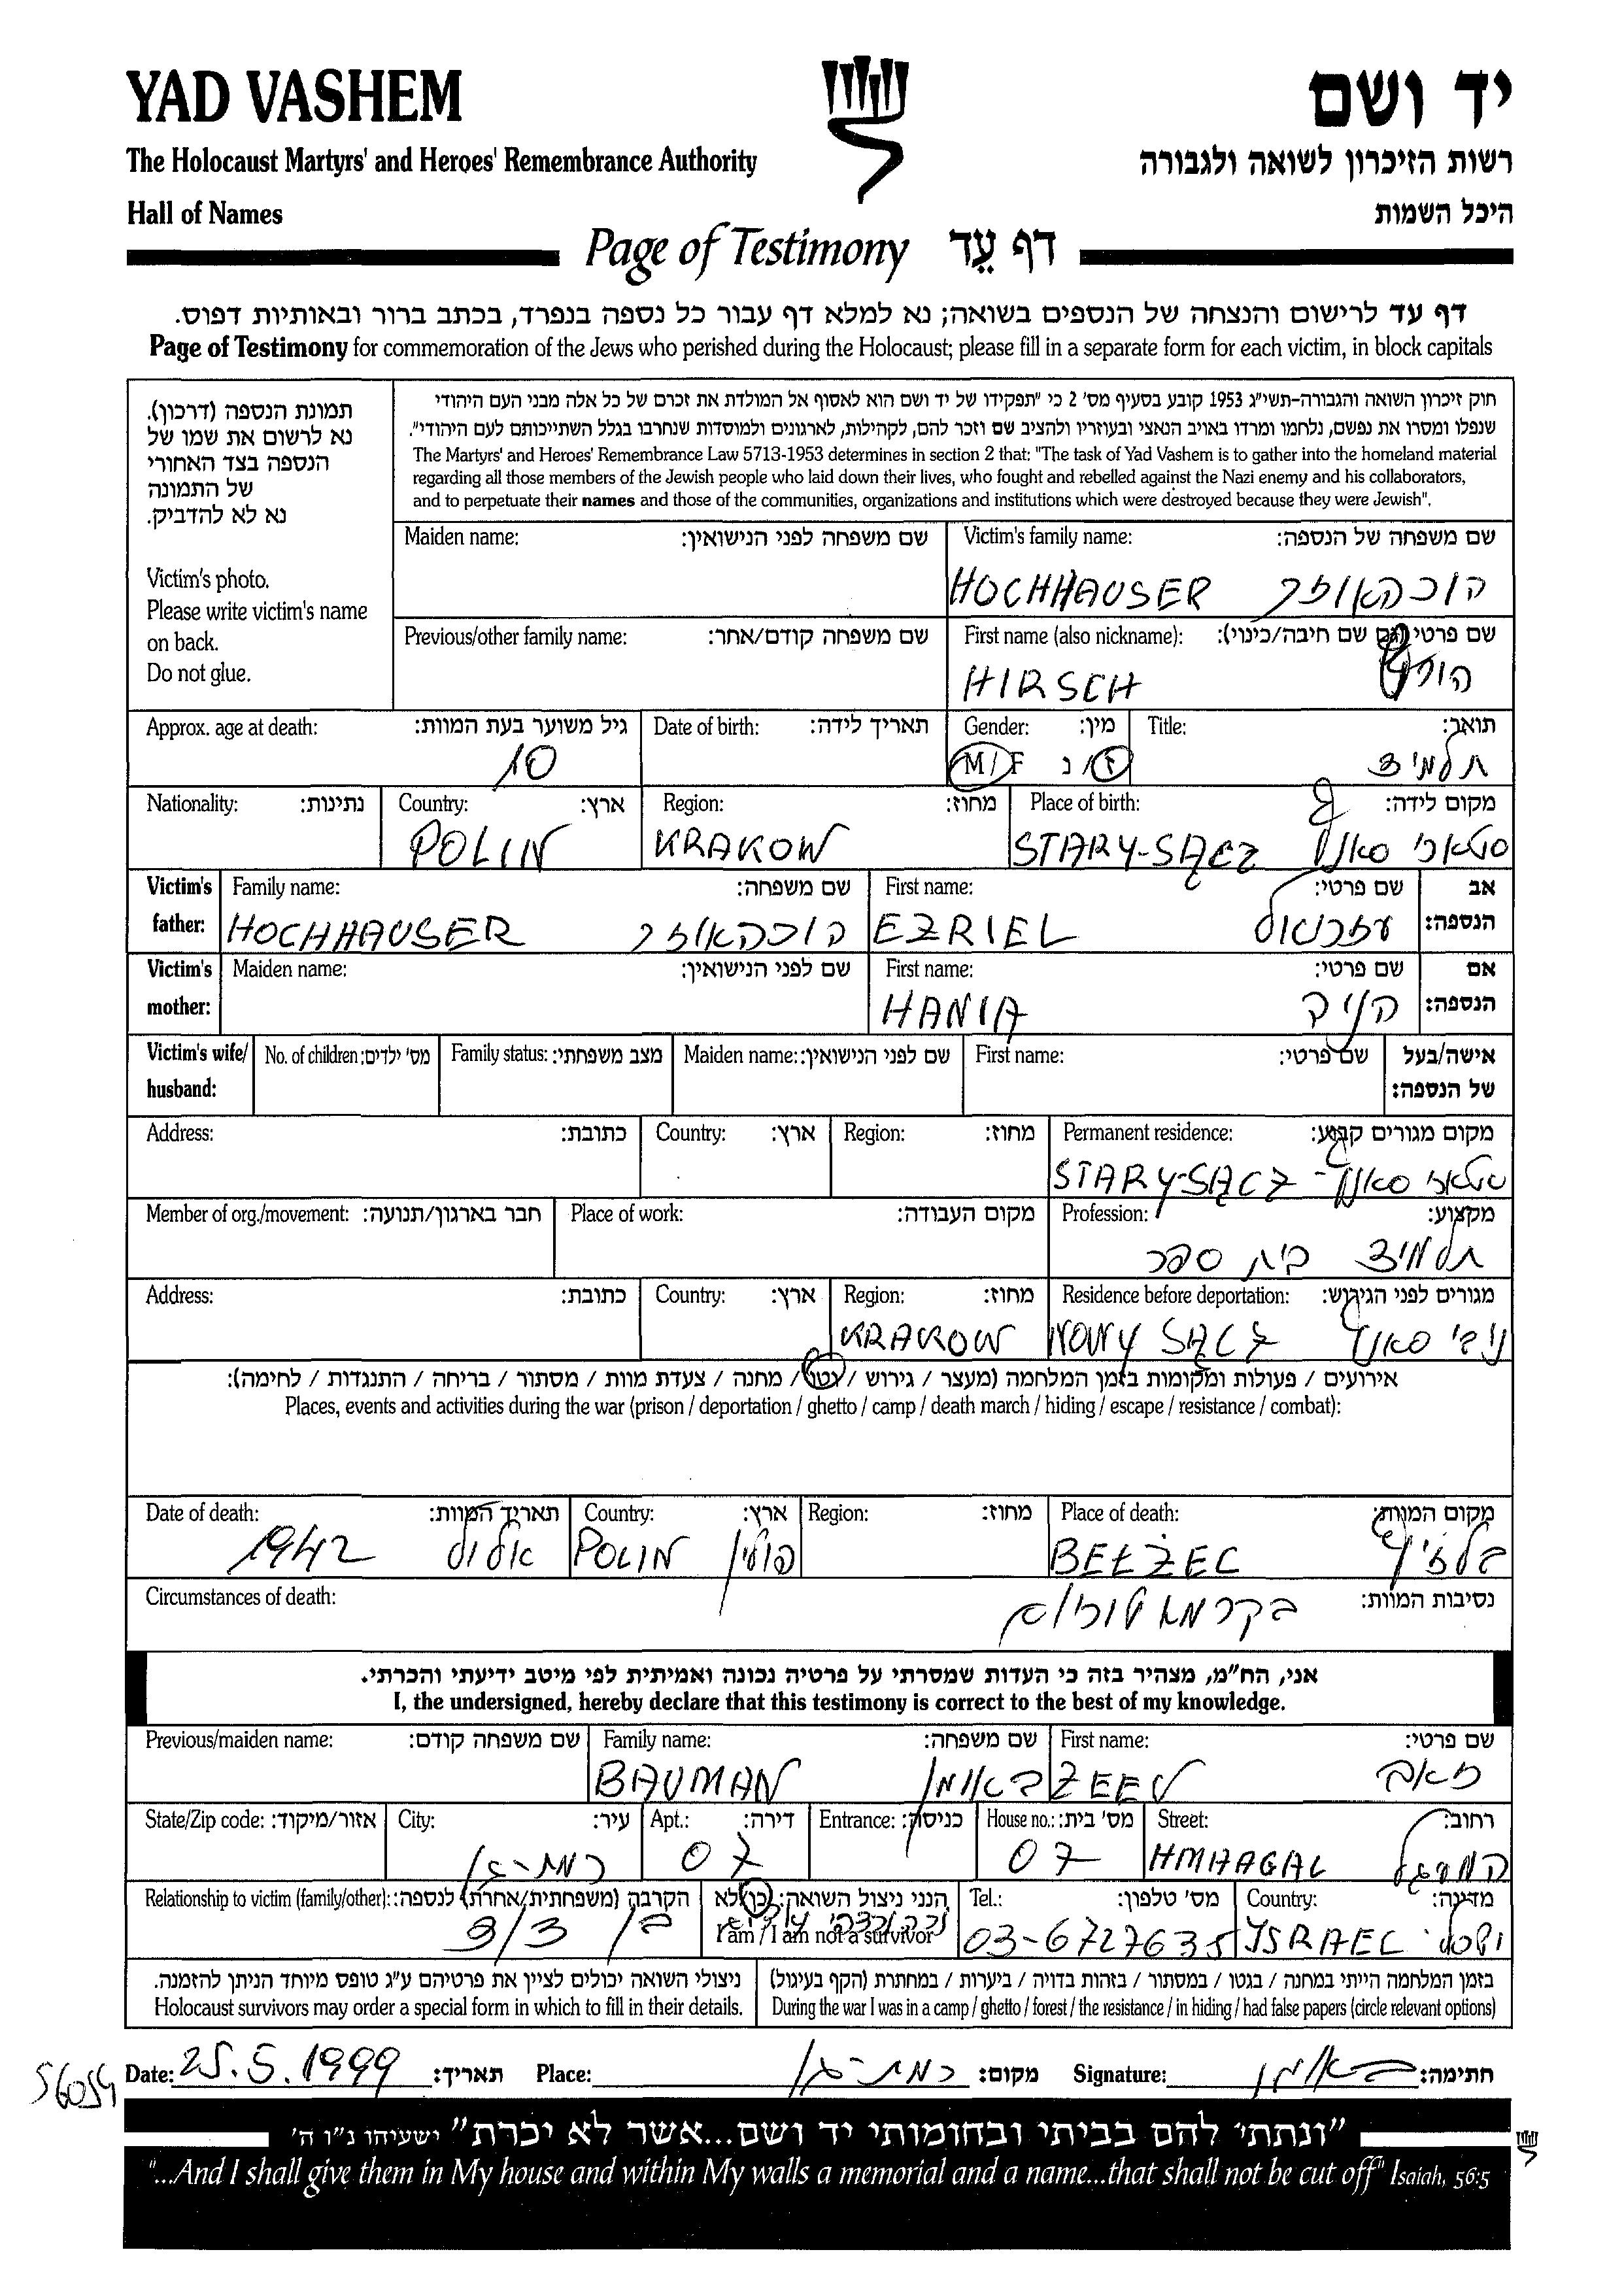 YAD VASHEM יד ושם
The Holocaust Martyrs' and Heroes' Remembrance Authority רשות הזיכרון לשואה ולגבורה
Hall of Names היכל השמות
Page of Testimony דף עֵד
דף עד לרישום והנצחה של הנספים בשואה; נא למלא דף עבור כל נספה בנפרד, בכתב ברור ובאותיות דפוס.
Page of Testimony for commemoration of the Jews who perished during the Holocaust; please fill in a separate form for each victim, in block capitals
תמונת הנספה (דרכון).
נא לרשום את שמו של
הנספה בצד האחורי
של התמונה
נא לא להדביק.
Victim's photo.
Please write victim's name
on back.
Do not glue.
חוק זיכרון השואה והגבורה-תשי"ג 1953 קובע בסעיף מס' 2 כי "תפקידו של יד ושם הוא לאסוף אל המולדת את זכרם של כל אלה מבני העם היהודי
שנפלו ומסרו את נפשם, נלחמו ומרדו באויב הנאצי ובעוזריו ולהציב שם וזכר להם, לקהילות, לארגונים ולמוסדות שנחרבו בגלל השתייכותם לעם היהודי".
The Martyrs' and Heroes' Remembrance Law 5713-1953 determines in section 2 that: "The task of Yad Vashem is to gather into the homeland material
regarding all those members of the Jewish people who laid down their lives, who fought and rebelled against the Nazi enemy and his collaborators,
and to perpetuate their names and those of the communities, organizations and institutions which were destroyed because they were Jewish".
Maiden name: שם משפחה לפני הנישואין: Victim's family name: שם משפחה של הנספה:
HOCHHAUSER הוכהאוזר
Previous/other family name: שם משפחה קודם/אחר: First name (also nickname): שם פרטי (גם שם חיבה/כינוי):
HIRSCH הירש
Approx. age at death: גיל משוער בעת המוות: Date of birth: תאריך לידה: Gender: מין: Title: תואר:
10 M / F ז / נ תלמיד
Nationality: נתינות: Country: ארץ: Region: מחוז: Place of birth: מקום לידה:
POLIN KRAKOW STARY-SĄCZ סטארי סאנץ
Victim's father: Family name: שם משפחה: First name: שם פרטי: אב הנספה:
HOCHHAUSER הוכהאוזר EZRIEL עזריאל
Victim's mother: Maiden name: שם לפני הנישואין: First name: שם פרטי: אם הנספה:
HANIA הניה
Victim's wife/ husband: No. of children: מס' ילדים: Family status: מצב משפחתי: Maiden name: שם לפני הנישואין: First name: שם פרטי: אישה/בעל של הנספה:
Address: כתובת: Country: ארץ: Region: מחוז: Permanent residence: מקום מגורים קבוע:
STARY-SĄCZ סטארי סאנץ
Member of org./movement: חבר בארגון/תנועה: Place of work: מקום העבודה: Profession: מקצוע:
תלמיד בית ספר
Address: כתובת: Country: ארץ: Region: מחוז: Residence before deportation: מגורים לפני הגירוש:
KRAKOW NOWY SĄCZ נובי סאנץ
אירועים / פעולות ומקומות בזמן המלחמה (מעצר / גירוש / גטו / מחנה / צעדת מוות / מסתור / בריחה / התנגדות / לחימה):
Places, events and activities during the war (prison / deportation / ghetto / camp / death march / hiding / escape / resistance / combat):
Date of death: תאריך המוות: Country: ארץ: Region: מחוז: Place of death: מקום המוות:
1942 אלול POLIN פולין BEŁŻEC בלזיץ
Circumstances of death: נסיבות המוות:
בקרמאטוריום
אני, הח"מ, מצהיר בזה כי העדות שמסרתי על פרטיה נכונה ואמיתית לפי מיטב ידיעתי והכרתי.
I, the undersigned, hereby declare that this testimony is correct to the best of my knowledge.
Previous/maiden name: שם משפחה קודם: Family name: שם משפחה: First name: שם פרטי:
BAUMAN באומן ZEEV זאב
State/Zip code: אזור/מיקוד: City: עיר: Apt.: דירה: Entrance: כניסה: House no.: מס' בית: Street: רחוב:
רמת-גן 07 07 HMAAGAL המעגל
Relationship to victim (family/other): הקרבה (משפחתית/אחרת) לנספה: הנני ניצול השואה: כן/לא Tel.: מס' טלפון: Country: מדינה:
בן דוד I am / I am not a survivor 03-6727635 ISRAEL ישראל
ניצולי השואה יכולים לציין את פרטיהם ע"ג טופס מיוחד הניתן להזמנה. בזמן המלחמה הייתי במחנה / בגטו / במסתור / בזהות בדויה / ביערות / במחתרת (הקף בעיגול)
Holocaust survivors may order a special form in which to fill in their details. During the war I was in a camp / ghetto / forest / the resistance / in hiding / had false papers (circle relevant options)
56059 Date: 25.5.1999 תאריך: Place: רמת-גן מקום: Signature: באומן חתימה:
"ונתתי להם בביתי ובחומותי יד ושם...אשר לא יכרת" ישעיהו נ"ו ה'
"...And I shall give them in My house and within My walls a memorial and a name...that shall not be cut off" Isaiah, 56:5